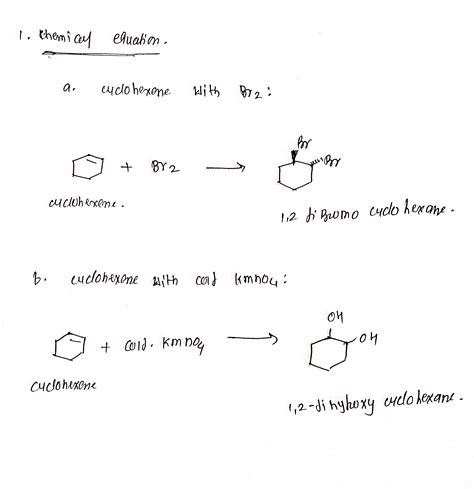 1. Chemical equation.
a. cyclohexene with Br2:
Br
Br
+ Br2
cyclohexene.
1,2 diBromo cyclohexane.
b. cyclohexene with cold KMnO4:
OH
OH
+ cold. KMnO4
cyclohexene
1,2-dihyhoxy cyclohexane.